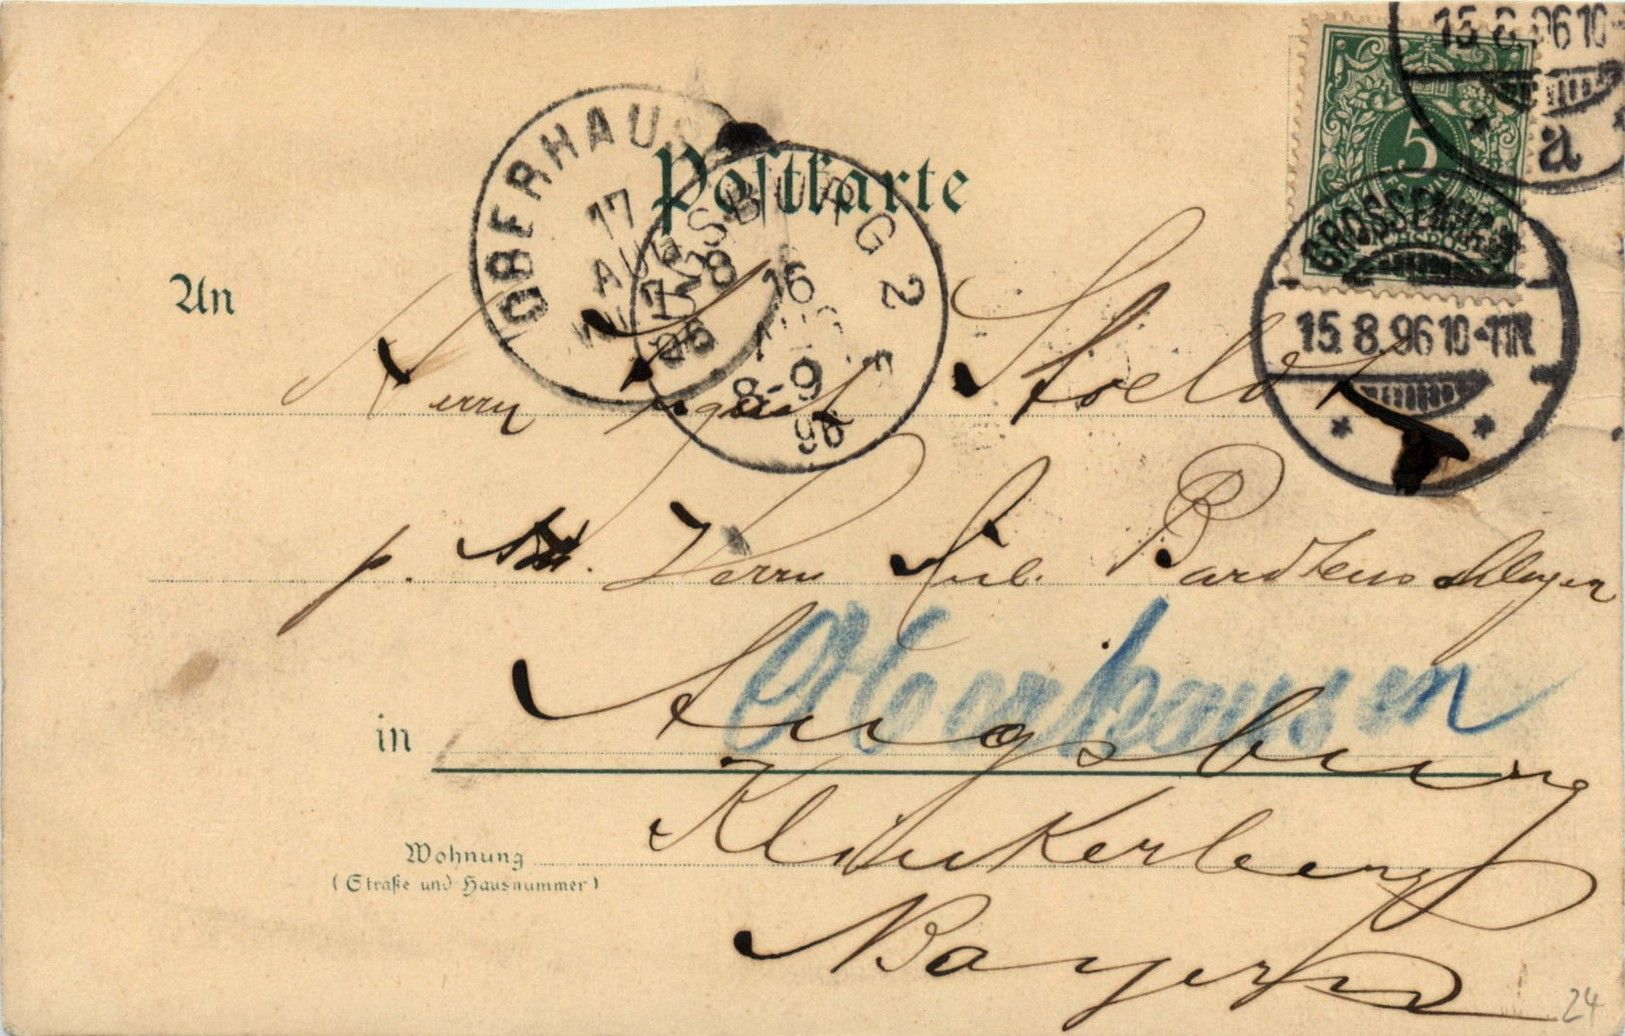 Postkarte
5
15.8.96 10-
a
GROSSENHAIN
15.8.96 10-11N.
OBERHAUS
17
AUG
96
AUGSBURG 2
16
8-9
96
An
Herrn August
p. Herrn Jul.
Oberhausen
in Augsburg
Klinkerberg
Wohnung
(Straße und Hausnummer)
Bayern
24